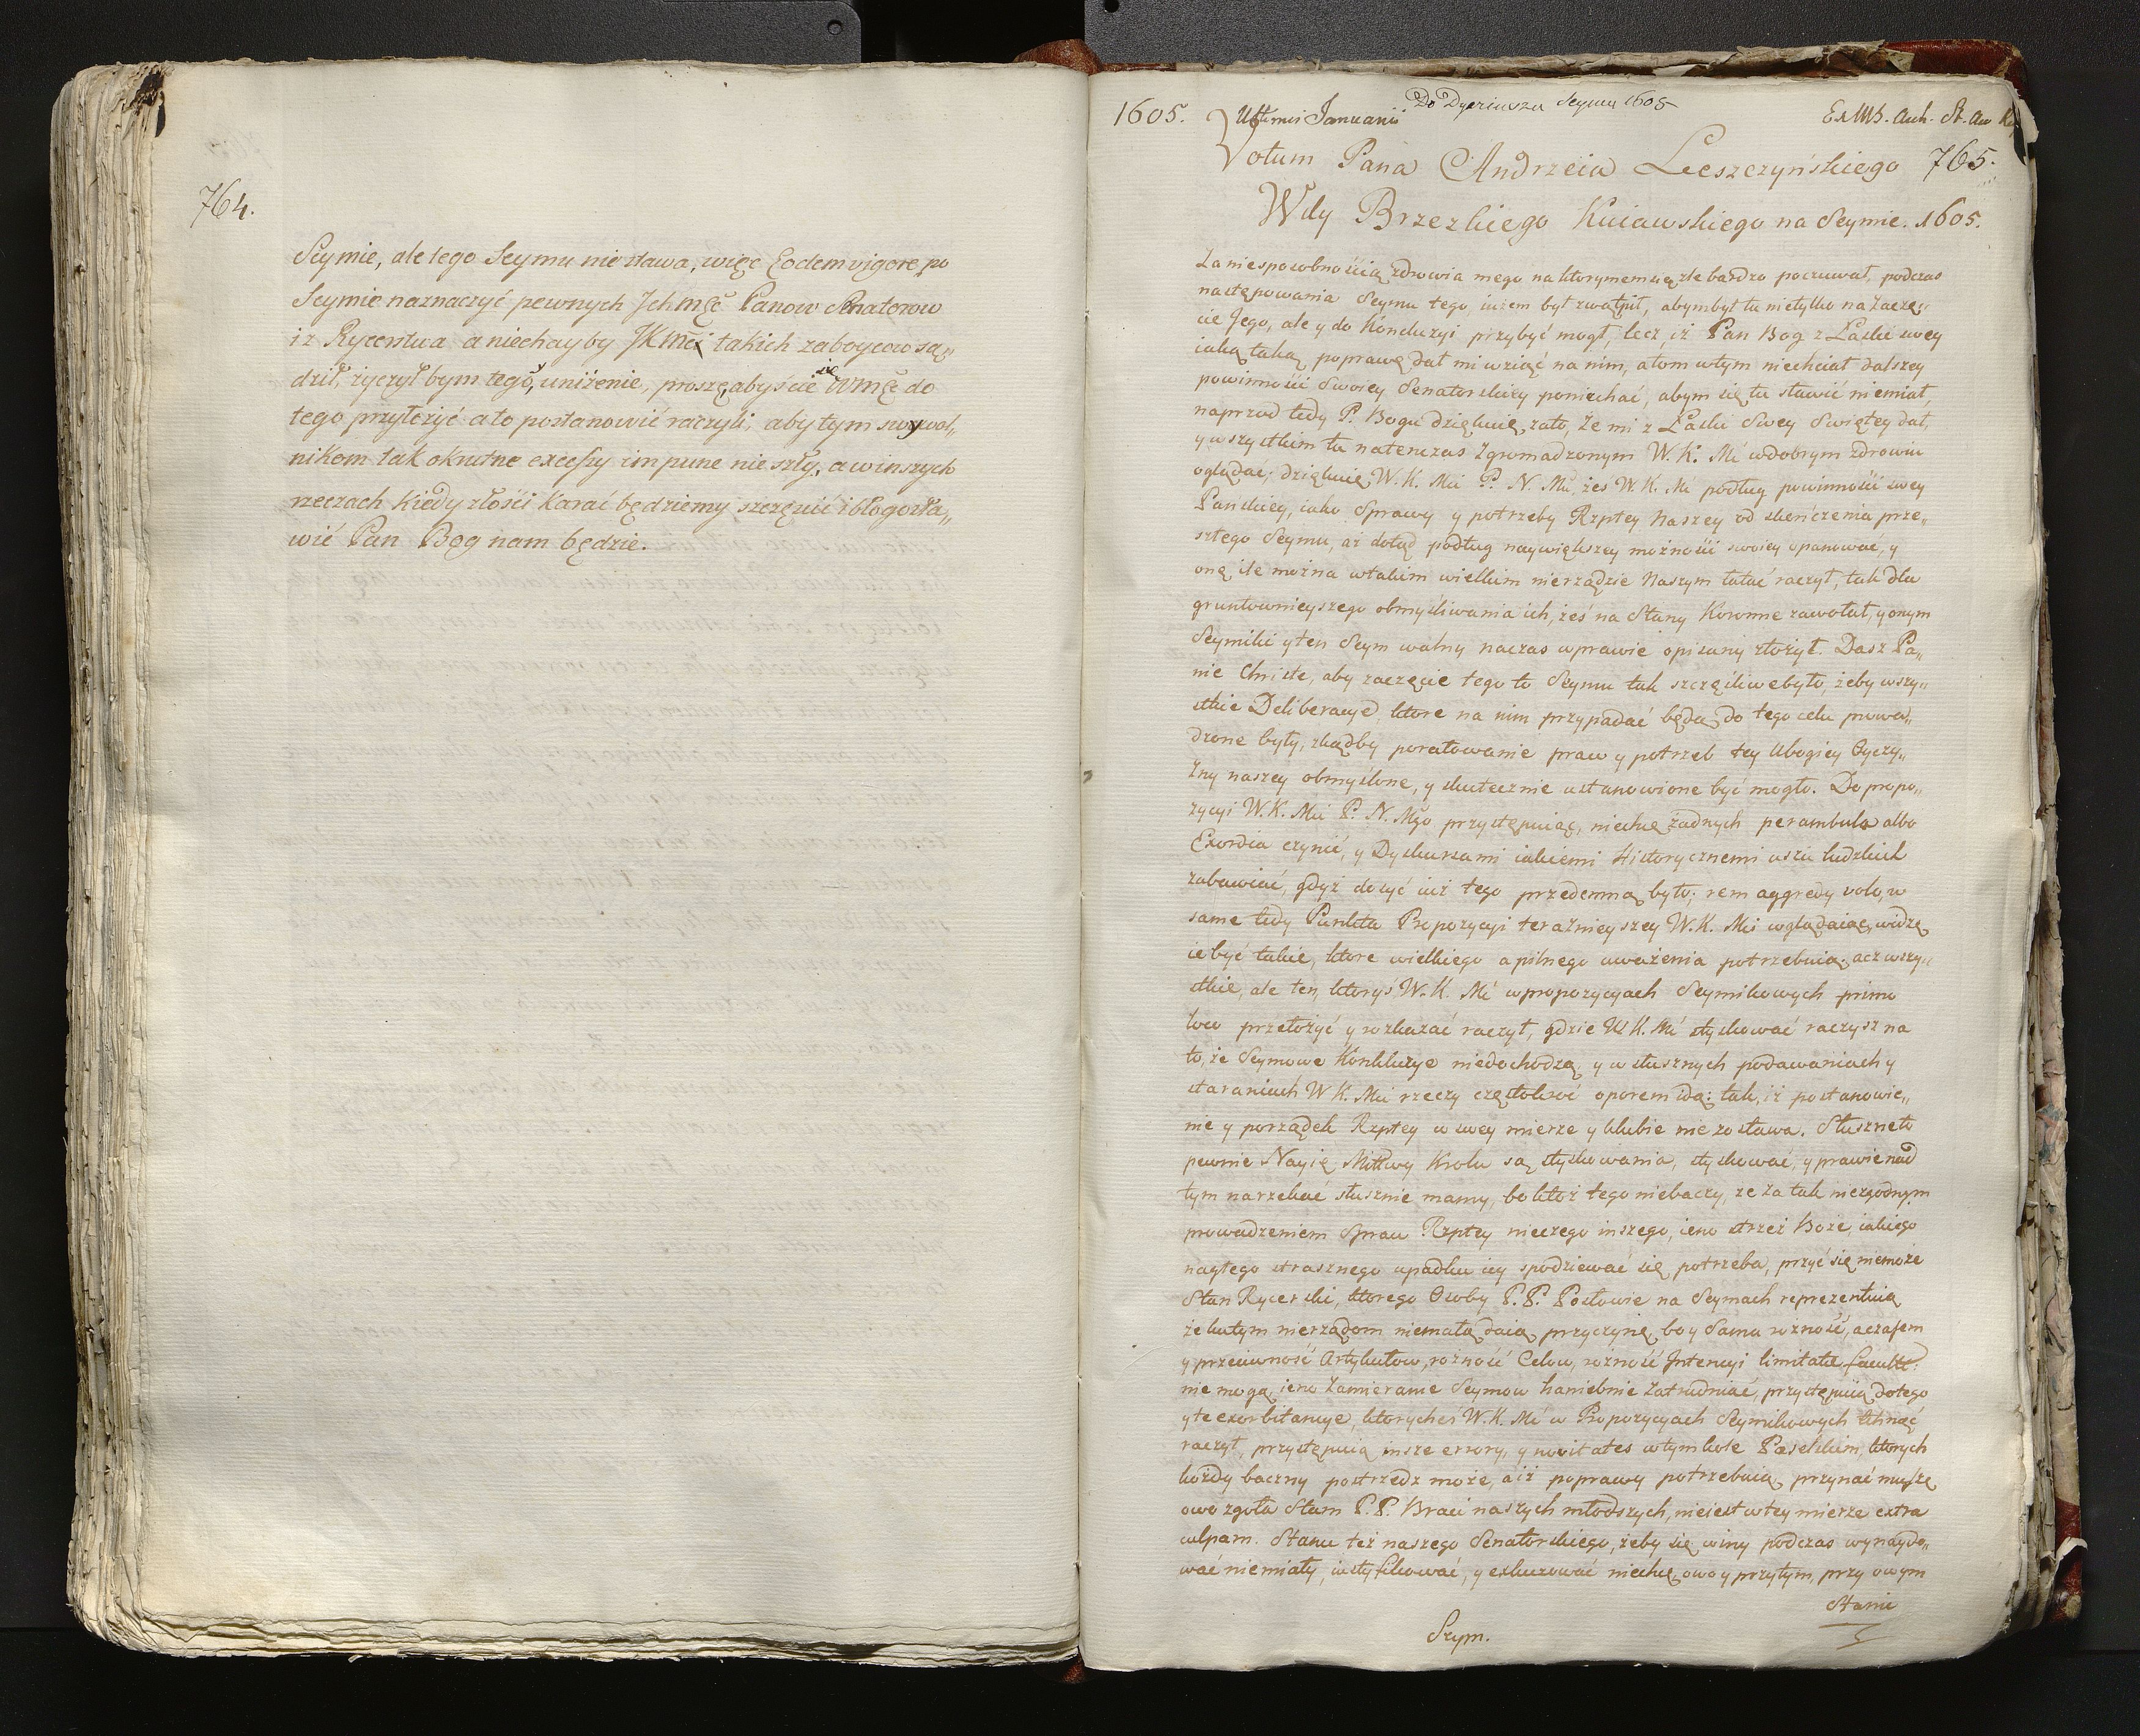 764.
Seymie, ale tego Seymu nie stawa, więc Eodem vigore po
Seymie naznaczyć pewnych Jchmćć Panow Senatorow
i z Rycerstwa a niechayby JKmći takich zaboycow są„
dził, życzył bym tego, uniżenie, proszę, abyście się Wmćć do
tego przyłożyć a to postanowić raczyli, aby tym swywol„
nikom tak okrutne excessy impune nie szły, a w inszych
rzeczach kiedy złości karać będziemy szczęścić i błogosła„
wić Pan Bog nam będzie.
1605.
Ultimis Januarii
Do Dyariusza Seymu 1605
Ex MS. Arch. St. Au
Votum Pana Andrzeia Leszczyńskiego 765.
Wdy Brzezkiego Kuiawskiego na Seymie. 1605.
Za niesposobnością zdrowia mego na ktorymem się zle bardzo poczuwał, podczas
następowania Seymu tego, iużem był zwątpił, abym był tu nietylko na Zaczę„
cie Jego, ale y do Konkluzyi przybyć mogł, lecz iż Pan Bog z Łaski swey
iaką taką poprawę dał mi wziąć na nim, a tom w tym niechciał dalszey
powinności Swoiey Senatorskiey poniechać, abym się tu stawić niemiał,
naprzod tedy P. Bogu dziękuię zato, Że mi z Łaski Swey Swiętey dał,
y wszystkim tu natenczas Zgromadzonym W. K. Mć w dobrym zdrowiu
oglądac; dziękuię W. K. Mći P. N. Mu, żeś W. K. Mć podług powinności swey
Panskiey, iako Sprawy y potrzeby Rzptey Naszey od skończenia prze„
szłego Seymu, aż dotąd podług naywiększey możności swoiey opanować, y
onę, ile można w takim wielkim nierządzie Naszym łatać raczył, tak dla
gruntownieyszego obmyśliwania ich, żeś na Stany Koronne zawołał, y onym
Seymiki y ten Seym walny naczas w prawie opisany złożył. Dasz Pa„
nie Christe, aby zaczęcie tego to Seymu tak szczęśliwe było, żeby wszy„
stkie Deliberacye ktore na nim przypadać będą, do tego celu prowa„
dzone były, zkądby poratowanie praw y potrzeb tey Ubogiey Oyczy„
Zny naszey obmyślone, y skutecznie ustanowione być mogło. Do propo„
zycyi W. K. Mći P. N. Mgo przystępuiąc, niechcę żadnych perambula albo
Exordia czynić, y Dyskursami iakiemi Historycznemi uszu ludzkich
zabawiać, gdyż dosyć iuż tego przedemną było; rem aggredy volo, w
same tedy Punkta Propozycyi teraźnieyszey W. K. Mći wglądaiąc, widzę
ie być takie, ktore wielkiego a pilnego uważenia potrzebuią; acz wszy„
stkie, ale ten, ktorys W. K. Mć w propozycyach Seymikowych primo
loco przełożyć y rozkazać raczył, gdzie W K. Mć styskować raczysz na
to, że Seymowe Konkluzye niedochodzą, y w słusznych podawaniach y
staraniach W K. Mći rzeczy częstokroć oporem idą: tak, iż postanowie„
nie y porządek Rzptey w swey mierze y klubie nie zostawa. Słuszneto
pewnie Nayię Miłłwy Krolu są styskowania, styskować, y prawie nad
tym narzekać słusznie mamy, bo ktoż tego niebaczy, że za tak niezgodnym
prowadzeniem Spraw Rzptey niczego inszego, ieno strzeż Boże, iakiego
nagłego strasznego upadku iey spodziewać się potrzeba, przyć się niemoże
Stan Rycerski, ktorego Osoby P. P. Posłowie na Seymach reprezentuią
że ku tym nierządom niemałą daią przyczynę, bo y Sama rożność, a czasem
y przeciwność Artykułow, rożność Celow, rożność Intencyi limitatæ facult:
nie mogą ieno Zamieranie Seymow haniebnie Zatrudniać, przystępuią do tego
y te exorbitancye, ktorycheś W. K. Mć w Propozycyach Seymikowych tknąć
raczył, przystępuią insze errory, y novitates w tym kole Poselskim, ktorych
każdy baczny postrzedz może, a iż poprawy potrzebuią, przyznać muszę
owo zgoła Stan P. P. Braci naszych młodszych, nieiest w tey mierze extra
culpam. Stanu też naszego Senatorskiego, żeby się winy podczas wynaydo„
wać niemiały, iustyfikować, y exkuzować niechcę, owo y przytym, przy owym
Stanie
Szym.